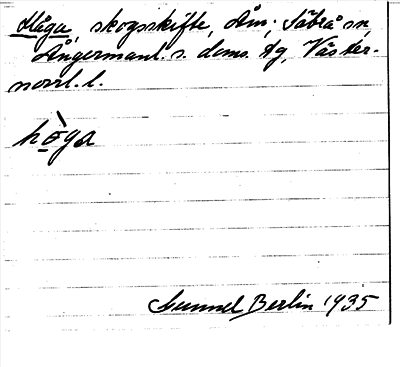 Håga, skogsskifte, Åm; Säbrå sn,
Ångermanl. s. doms. tg, Väster-
norrl. l.
hòga
Gunnel Berlin 1935